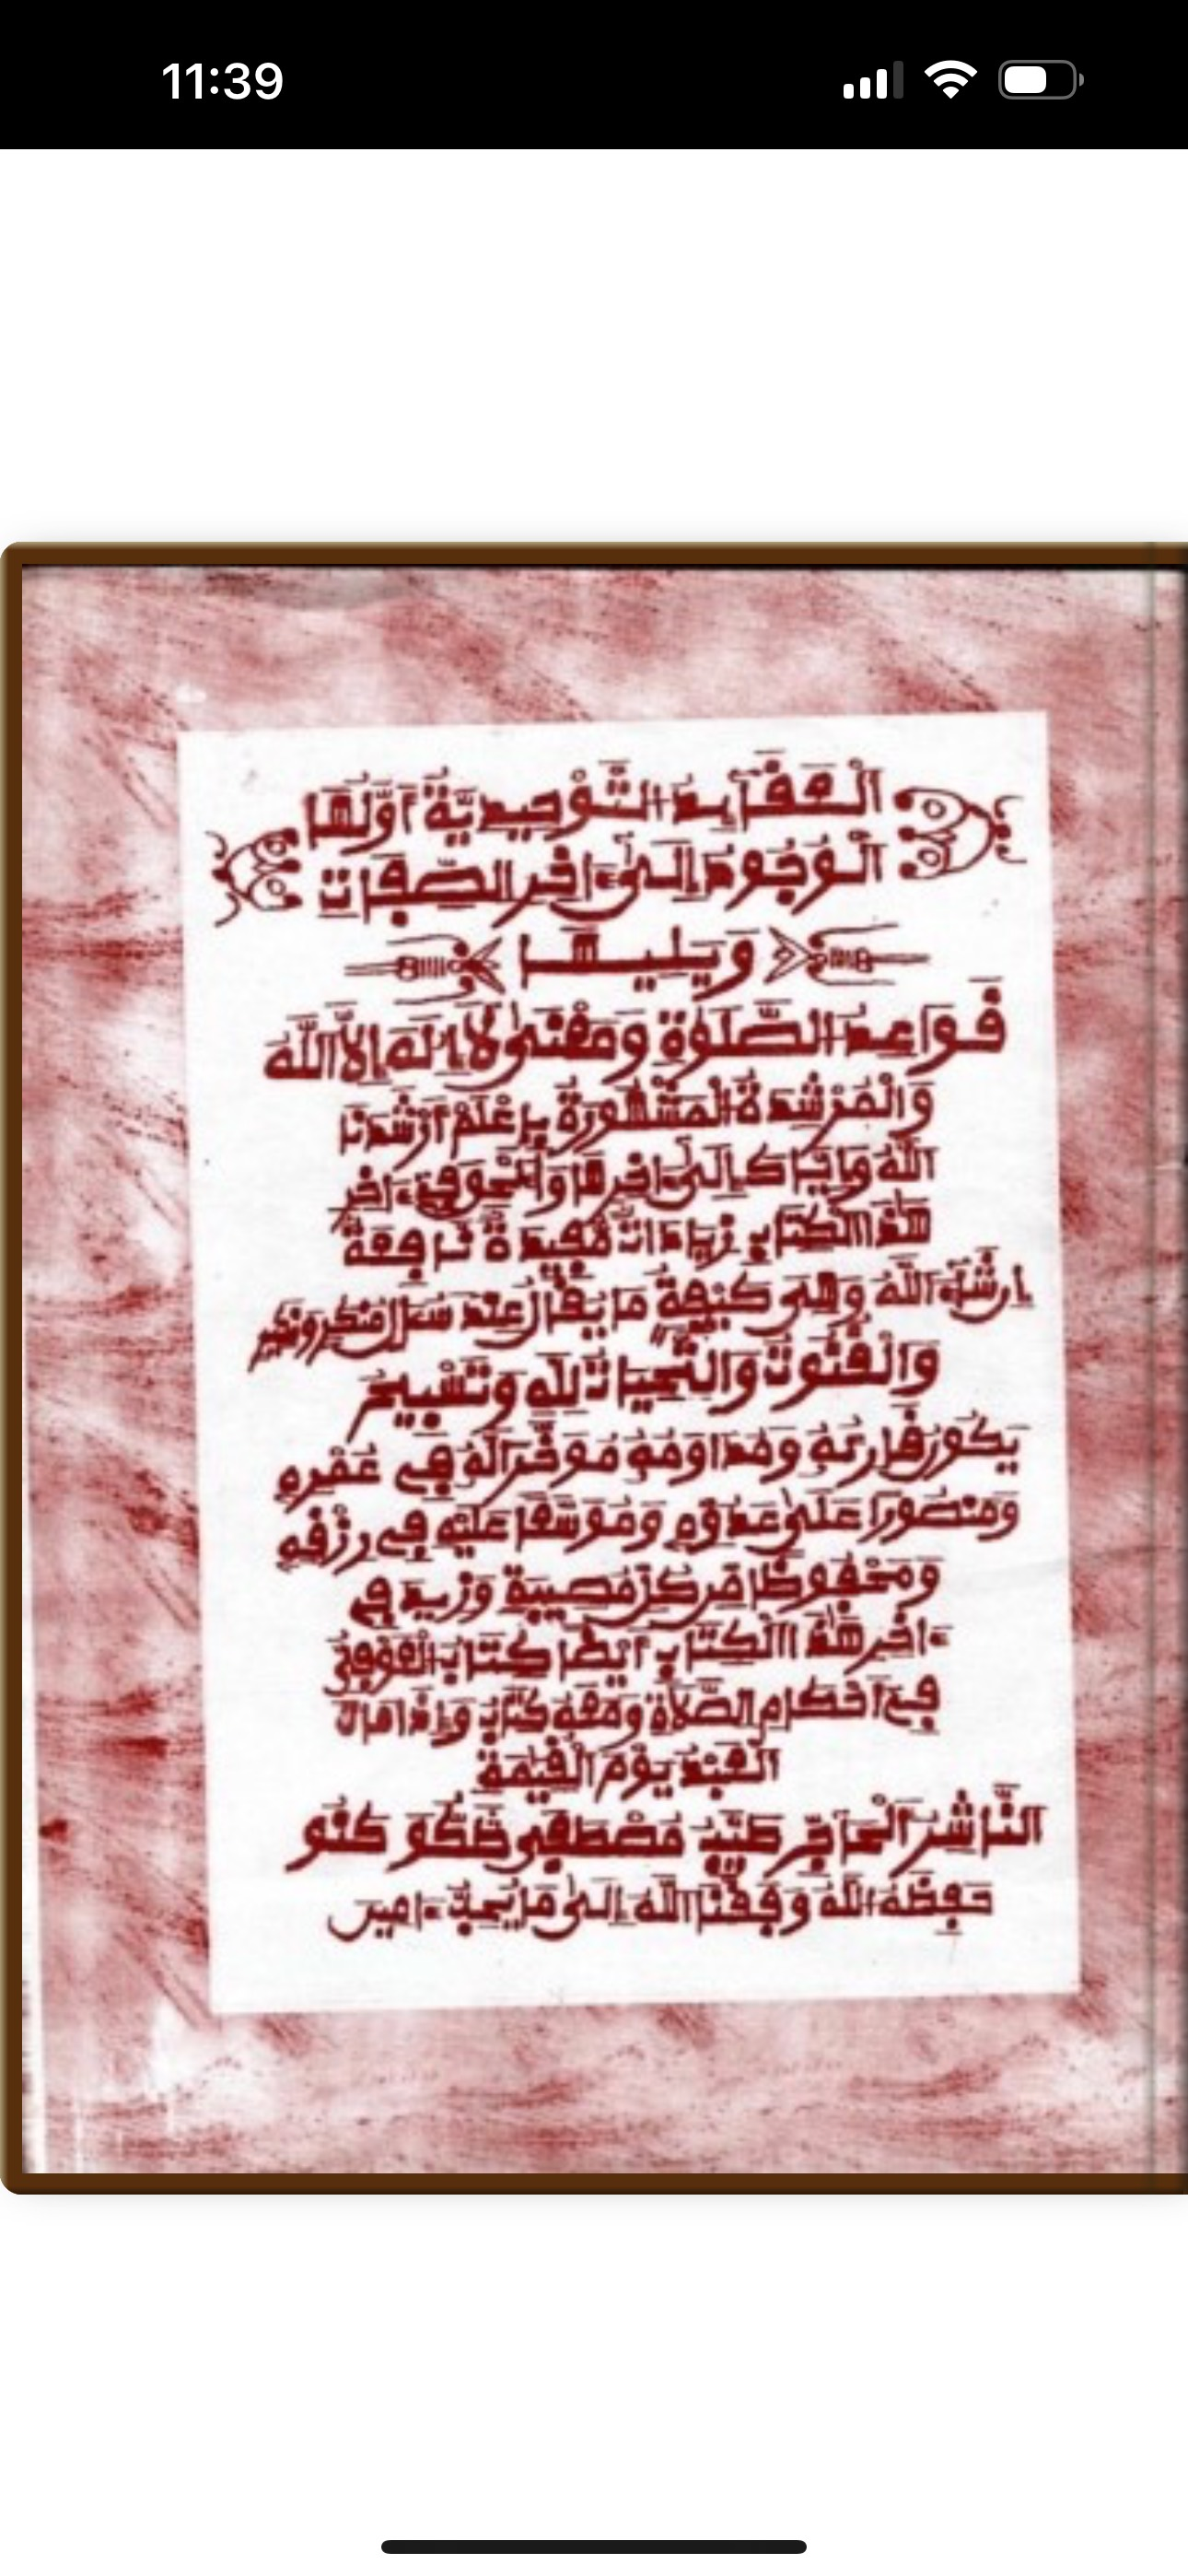 11:39
الْعَقَآئِدُ التَّوْحِيدِيَّةُ أَوَّلُهَا
الْوُجُودُ إِلَىٰ ءَاخِرِ الصِّفَاتِ
وَيَلِيهَا
قَوَاعِدُ الصَّلَوٰةِ وَمَعْنَىٰ لَا إِلَهَ إِلَّا اللَّهُ
وَالْمُرْشِدَةُ الْمَشْهُورَةُ بِإِعْلَمْ أَرْشَدَنَا
اللَّهُ وَإِيَّاكَ إِلَىٰ ءَاخِرِهَا وَأَلْحَقَ فِي ءَاخِرِ
هَٰذَا الْكِتَابِ زِيَادَاتٌ مُفِيدَةٌ نَافِعَةٌ
إِن شَآءَ اللَّهُ وَهِيَ كَيْفِيَّةُ مَا يُقَالُ عِنْدَ سُؤَالِ مُنكَرٍ وَنَكِيرٍ
وَالْقُنُوتُ وَالتَّحِيَّاتُ لِلَّهِ وَتَسْبِيحٌ
يَكُونُ قَارِئُهُ وَمُدَاوِمُهُ مُوَخَّرًا لَهُ فِي عُمْرِهِ
وَمَنصُورًا عَلَىٰ عَدُوِّهِ وَمُوَسَّعًا عَلَيْهِ فِي رِزْقِهِ
وَمَحْفُوظًا مِن كُلِّ مُصِيبَةٍ وَزِيدَ فِي
ءَاخِرِ هَٰذَا الْكِتَابِ أَيْضًا كِتَابُ
فِي أَحْكَامِ الصَّلَاةِ وَمَعَهُ كِتَابُ وَإِذَا مَاتَ
الْعَبْدُ يَوْمَ الْقِيَٰمَةِ
النَّاشِرُ الْحَاجِّ طَيِّبُ مُصْطَفَى كَنُو
حَفِظَهُ اللَّهُ وَفَّقَنَا اللَّهُ إِلَىٰ مَا يُحِبُّ ءَامِين